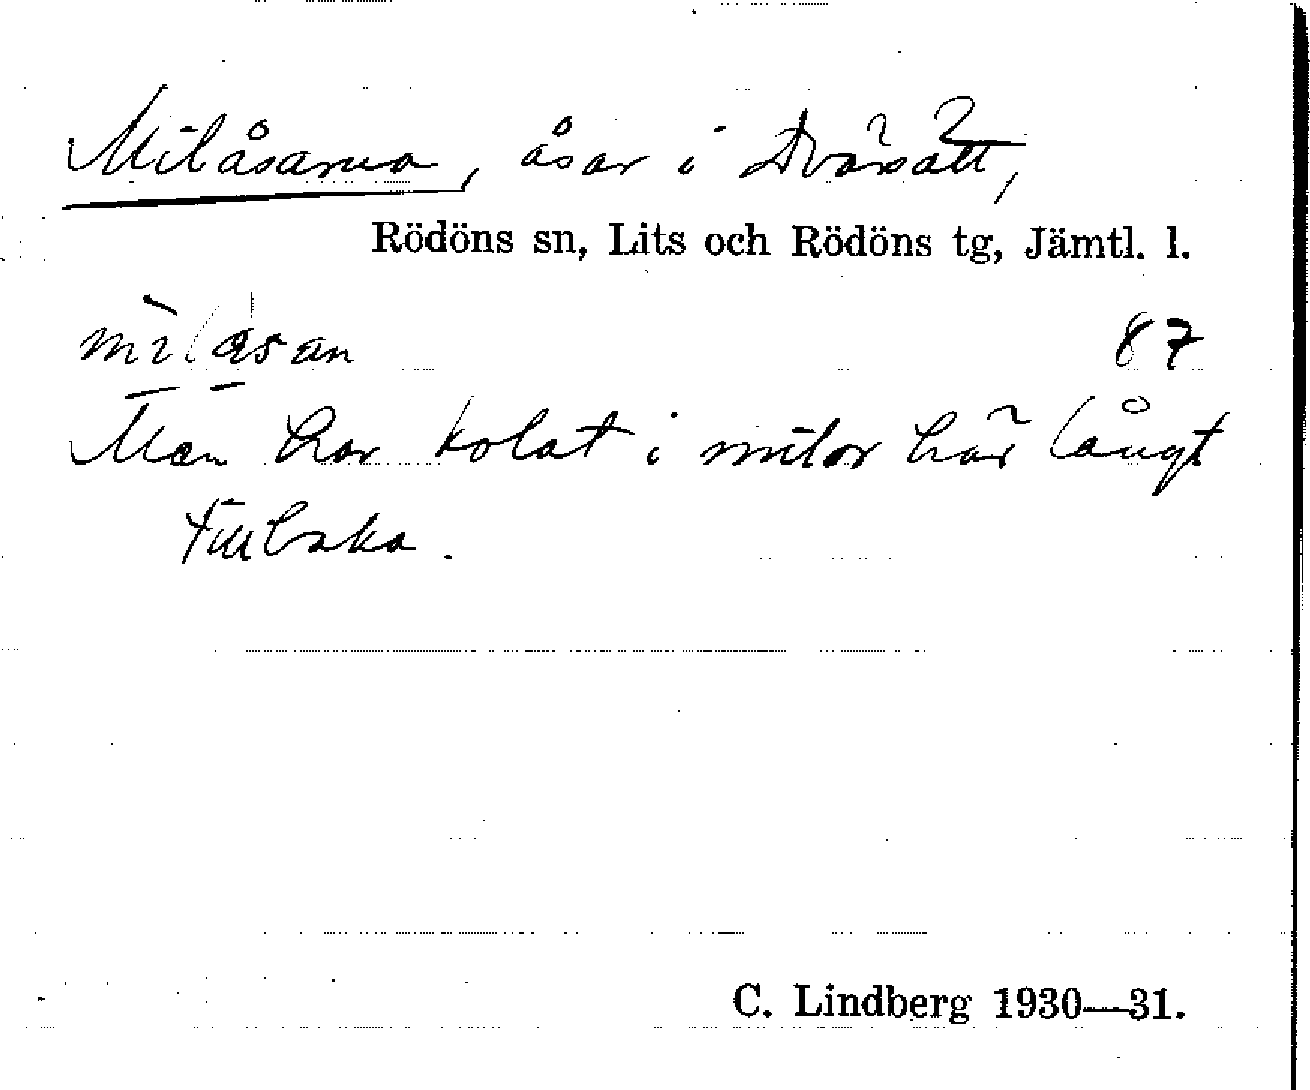 Milåsarna, åsar i Dvärsätt,
Rödöns sn, Lits och Rödöns tg, Jämtl. l.
mìlåsan 87
Man har kolat i milor här långt
tillbaka.
C. Lindberg 1930—31.